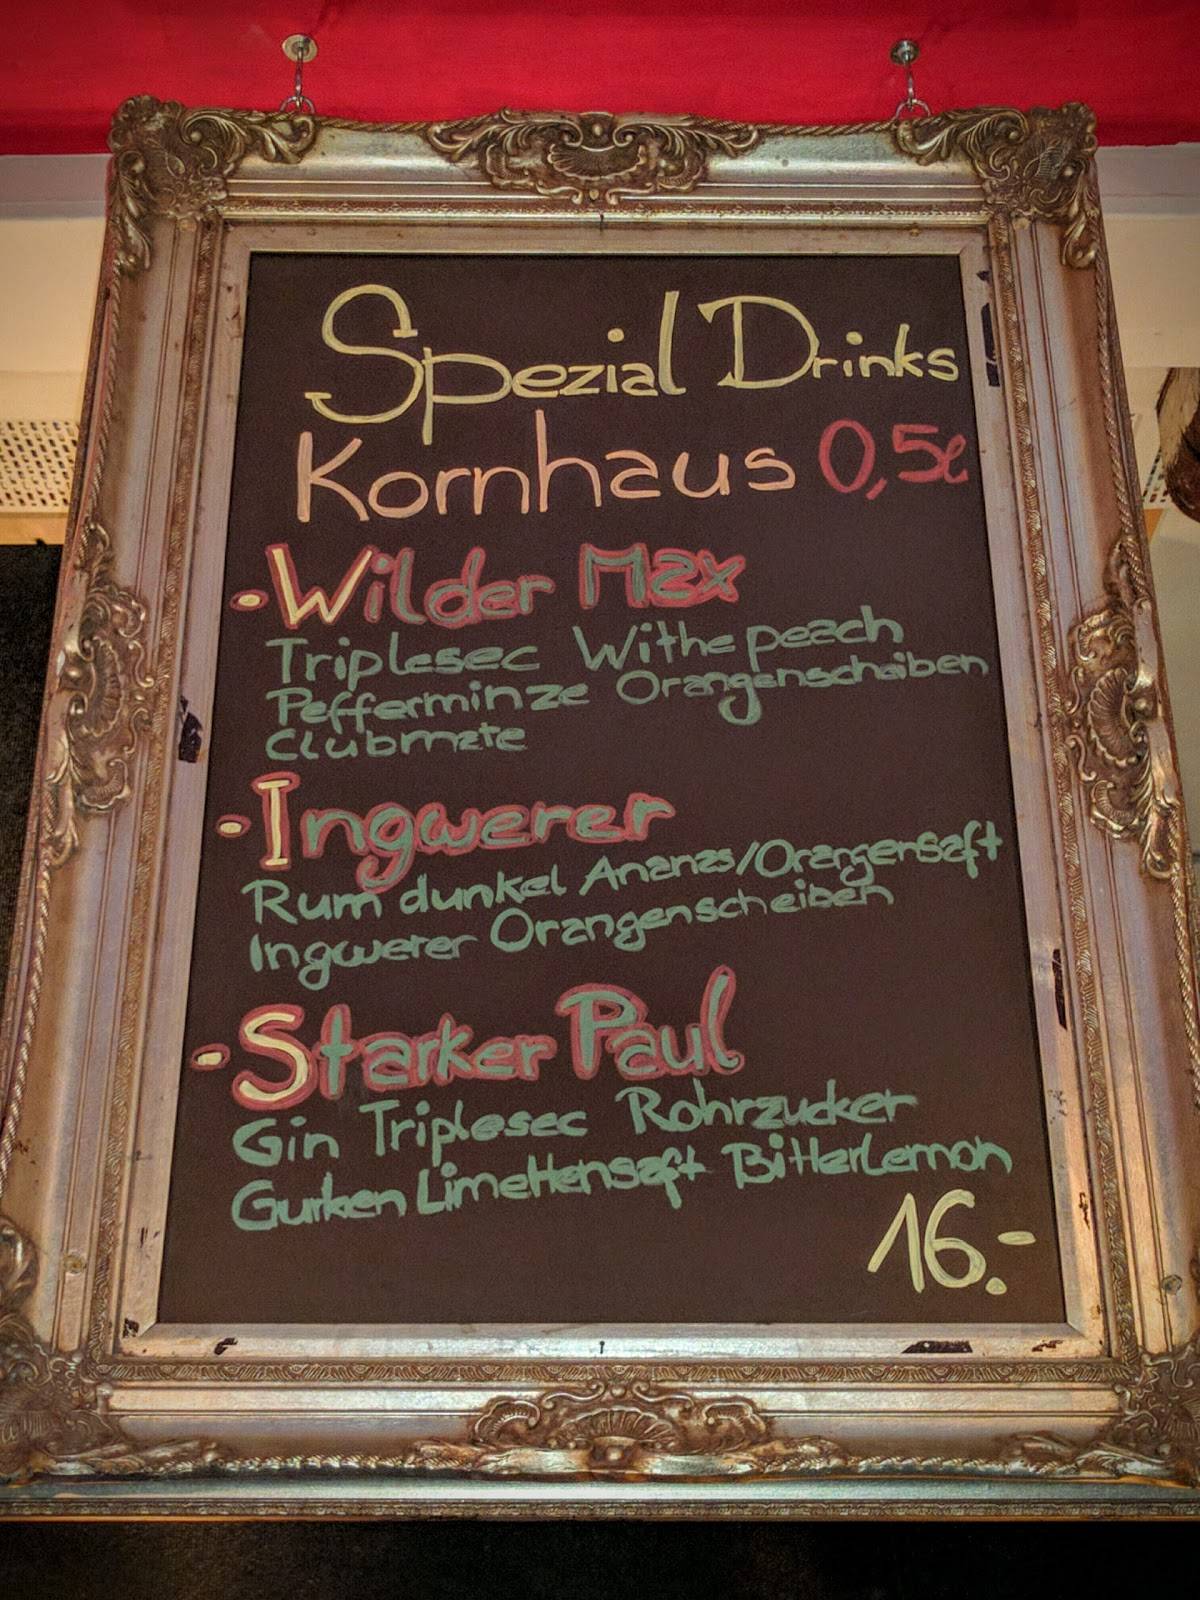 Spezial Drinks
Kornhaus 0,5l
•Wilder Max
Triplesec Withe peach
Pefferminze Orangenscheiben
Clubmate
•Ingwerer
Rum dunkel Ananas/Orangensaft
Ingwerer Orangenscheiben
•Starker Paul
Gin Triplesec Rohrzucker
Gurken Limettensaft Bitterlemon
16.-